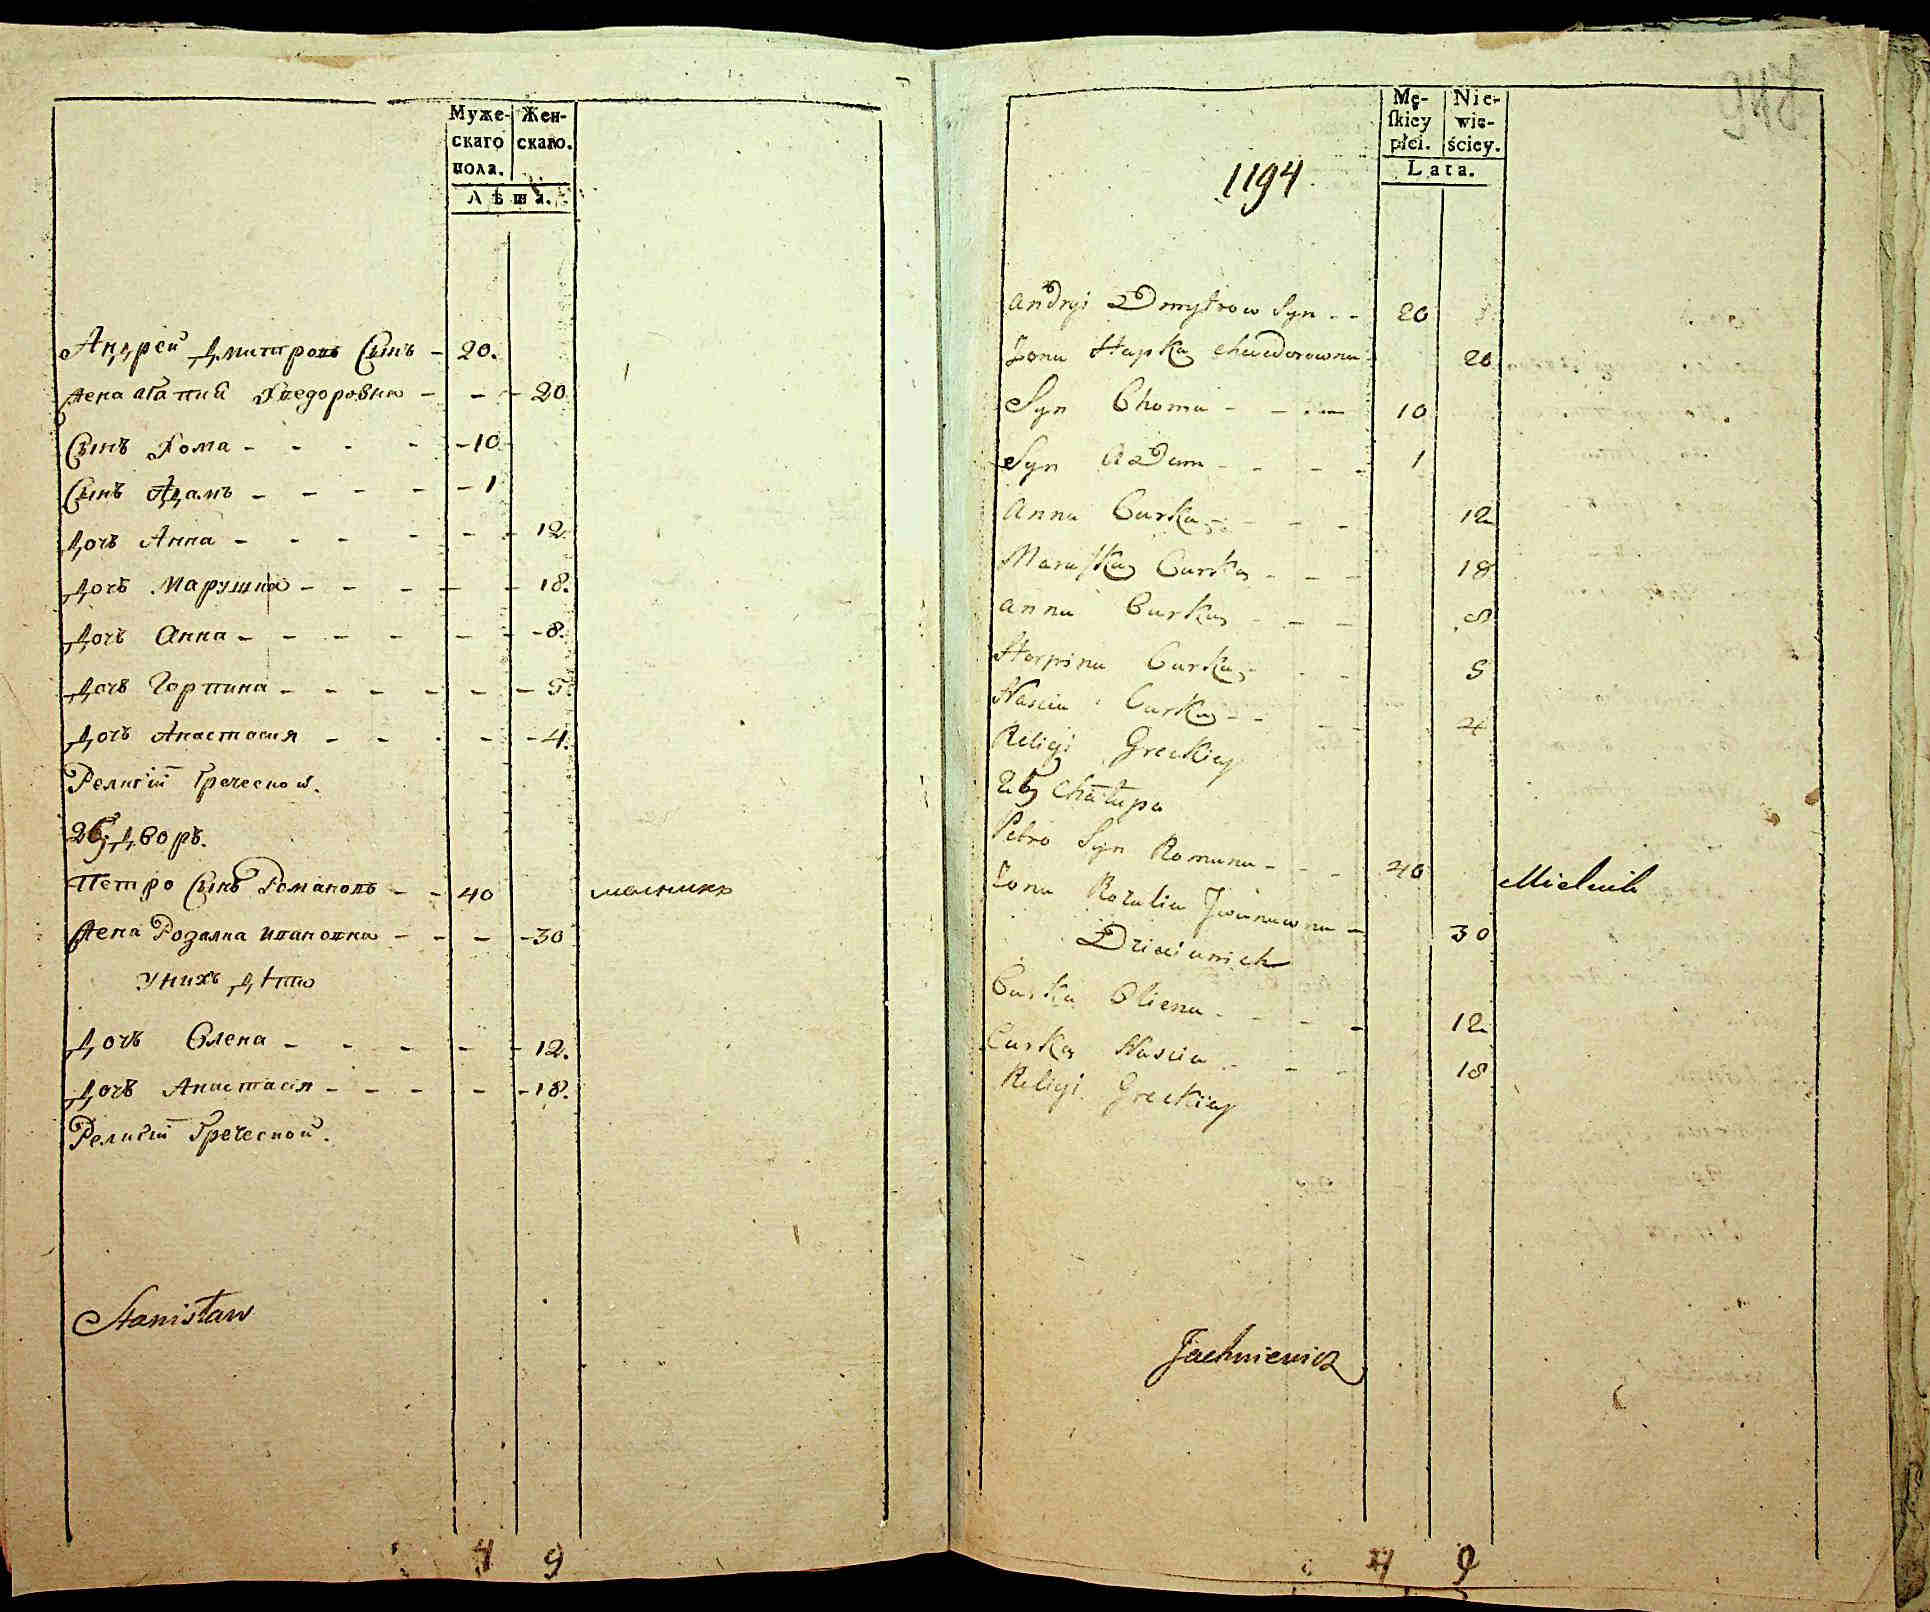 Муже-
скаго
пола.
Жен-
скаго.
Лѣта.
Андрей Дмитровъ Сынъ - 20.
Жена Агапия Хведоровна - - - 20
Сынъ Хома - - - - - 10
Сынъ Адамъ - - - - - 1
Дочъ Анна - - - - - - 12
Дочъ Марушка - - - - - 18.
Дочъ Анна - - - - - - - 8.
Дочъ Горпина - - - - - - 5.
Дочъ Анастасия - - - - - 4.
Религіи Греческой.
26, Дворъ.
Петро Сынъ Романовъ - - 40 мелникъ
Жена Розалиа Ивановна - - - - 30
У нихъ дѣти
Дочъ Олена - - - - - 12.
Дочъ Анастасія - - - - - - 18.
Религіи Греческой.
Stanisław
4 9
1194
Mę-
ſkiey
płci.
Nie-
wie-
ściey.
Lata.
Andryi Dmytrow Syn - - 20
Żona Hapka Chwedorowna 20
Syn Choma - - - - 10
Syn Adam - - - - 1
Anna Curka - - - - 12
Maruſka Curka - - - 18
Anna Curka - - - 8
Horpina Curka - - - 5
Nascia Curka - - - - 4
Religi Greckiey
26, Chałupa
Petro Syn Romana - - - 40 Mielnik
Żona Rozalia Iwanowna - 30
Dzieci u nich
Curka Oliena - - - - 12
Curka Nascia - - - 18
Religi Greckiey
Jachniewicz
4 9